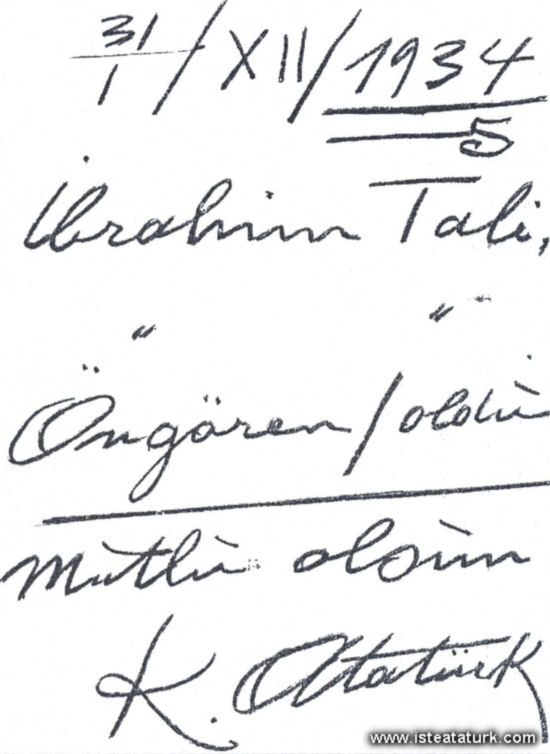 31/1/XII/1934
5
İbrahim Tali,
" "
Öngören/oldu
mutlu olsun
K. Atatürk
www.isteataturk.com